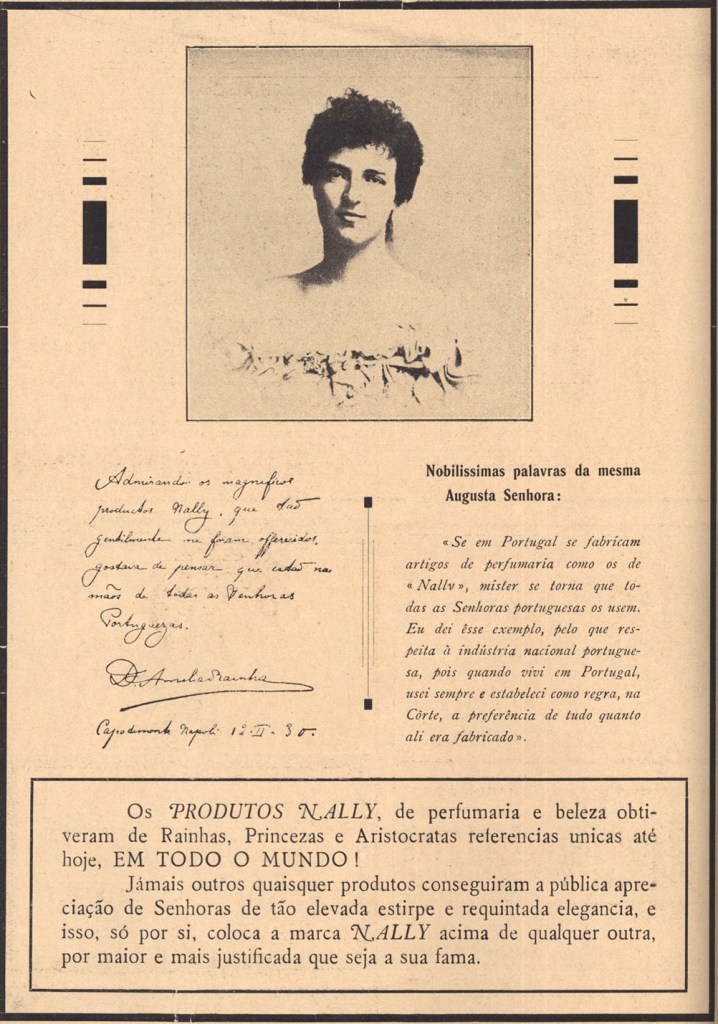 Admirando os magnificos
productos Nally, que tão
gentilmente me foram offerecidos,
gostava de pensar que estão nas
mãos de todas as Senhoras
Portuguezas.
D. Amelia Rainha
Capodimonte Napoli 12-II-30.
Nobilissimas palavras da mesma
Augusta Senhora:
«Se em Portugal se fabricam
artigos de perfumaria como os de
«Nally», mister se torna que to-
das as Senhoras portuguesas os usem.
Eu dei êsse exemplo, pelo que res-
peita à indústria nacional portugue-
sa, pois quando vivi em Portugal,
usei sempre e estabeleci como regra, na
Côrte, a preferência de tudo quanto
ali era fabricado».
Os PRODUTOS NALLY, de perfumaria e beleza obti-
veram de Rainhas, Princezas e Aristocratas referencias unicas até
hoje, EM TODO O MUNDO!
Jámais outros quaisquer produtos conseguiram a pública apre-
ciação de Senhoras de tão elevada estirpe e requintada elegancia, e
isso, só por si, coloca a marca NALLY acima de qualquer outra,
por maior e mais justificada que seja a sua fama.